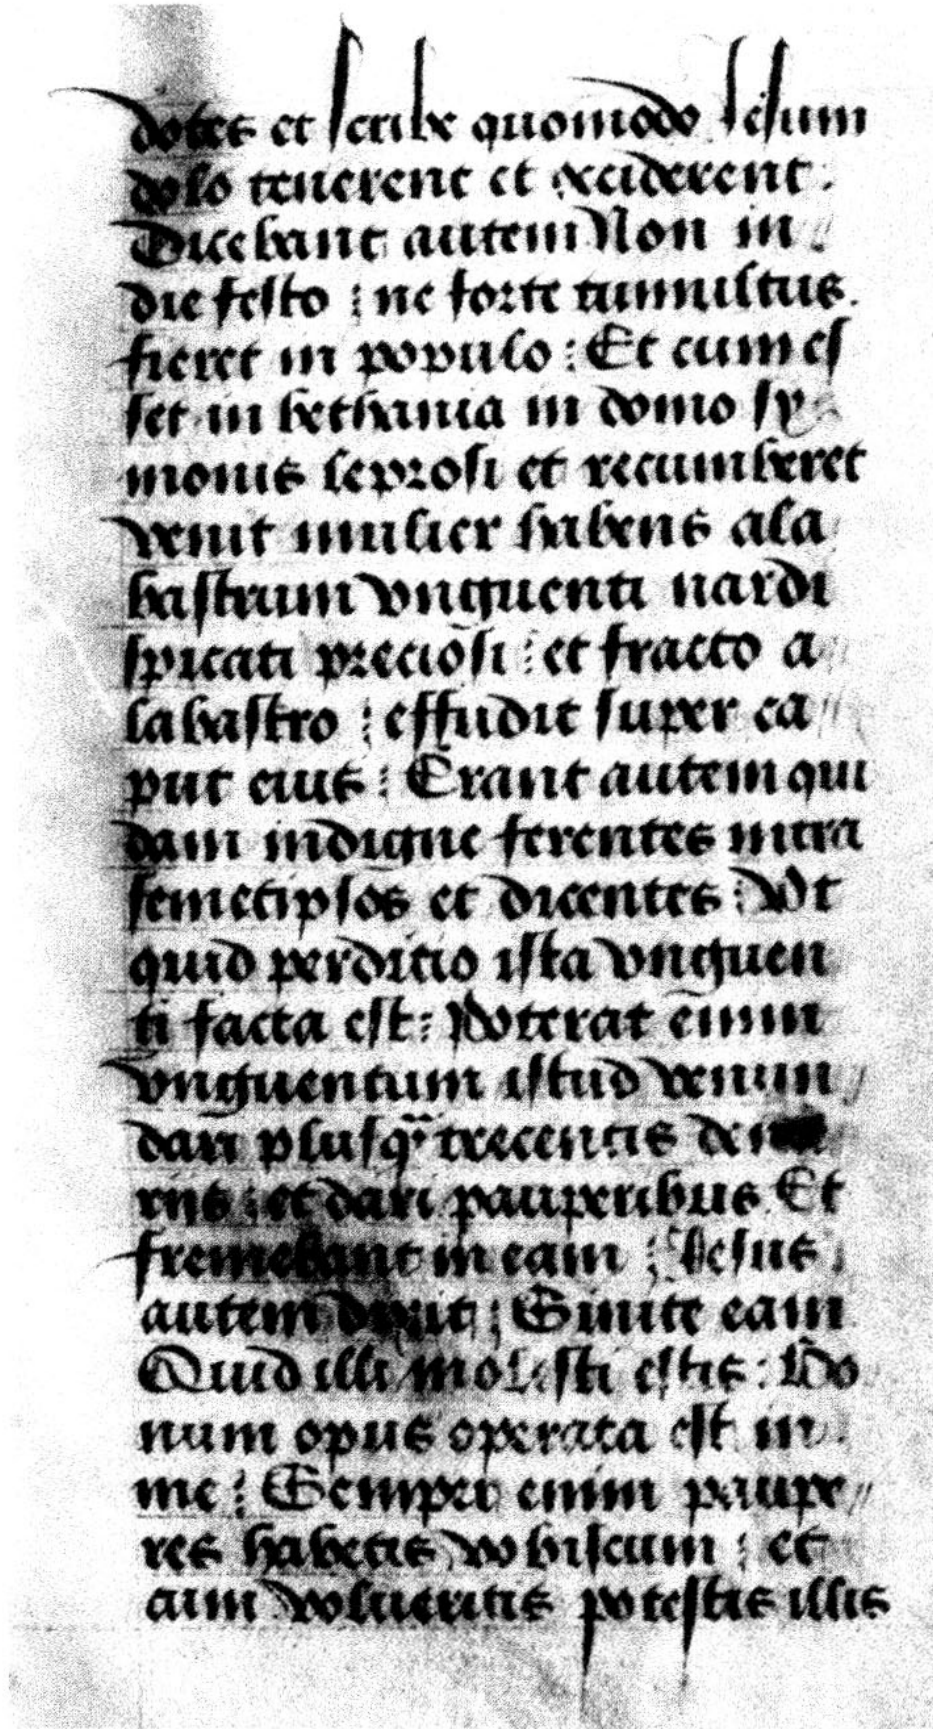 dotes et scribe quomodo Iesum
dolo tenerent et occiderent :
Dicebant autem Non in
die festo : ne forte tumultus.
fieret in populo : Et cum es
set in bethania in domo sy
monis leprosi et recumberet
venit mulier habens ala
bastrum vnguenti nardi
spicati preciosi : et fracto a
labastro : effudit super ca
put eius : Erant autem qui
dam indigne ferentes intra
semetipsos et dicentes : Vt
quid perditio ista vnguen
ti facta est : Poterat enim
vnguentum istud venun
dari plusq̃ trecentis dena
rijs : et dari pauperibus Et
fremebant in eam : Iesus
autem dixit : Sinite eam
Quid illi molesti estis : Bo
num opus operata est in
me : Semper enim paupe
res habetis vobiscum : et
cum volueritis potestis illis